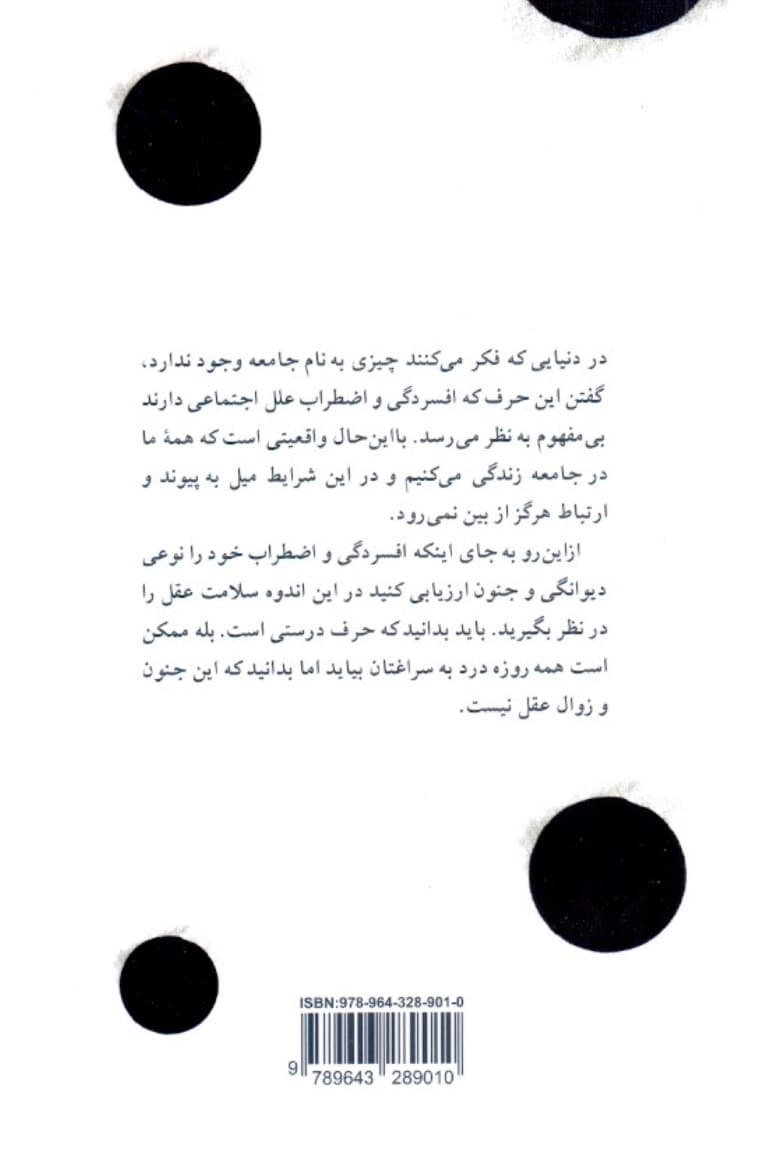 در دنیایی که فکر می‌کنند چیزی به نام جامعه وجود ندارد،
گفتن این حرف که افسردگی و اضطراب علل اجتماعی دارند
بی‌مفهوم به نظر می‌رسد. بااین‌حال واقعیتی است که همهٔ ما
در جامعه زندگی می‌کنیم و در این شرایط میل به پیوند و
ارتباط هرگز از بین نمی‌رود.
ازاین‌رو به جای اینکه افسردگی و اضطراب خود را نوعی
دیوانگی و جنون ارزیابی کنید در این اندوه سلامت عقل را
در نظر بگیرید. باید بدانید که حرف درستی است. بله ممکن
است همه روزه درد به سراغتان بیاید اما بدانید که این جنون
و زوال عقل نیست.
ISBN:978-964-328-901-0
9 789643 289010